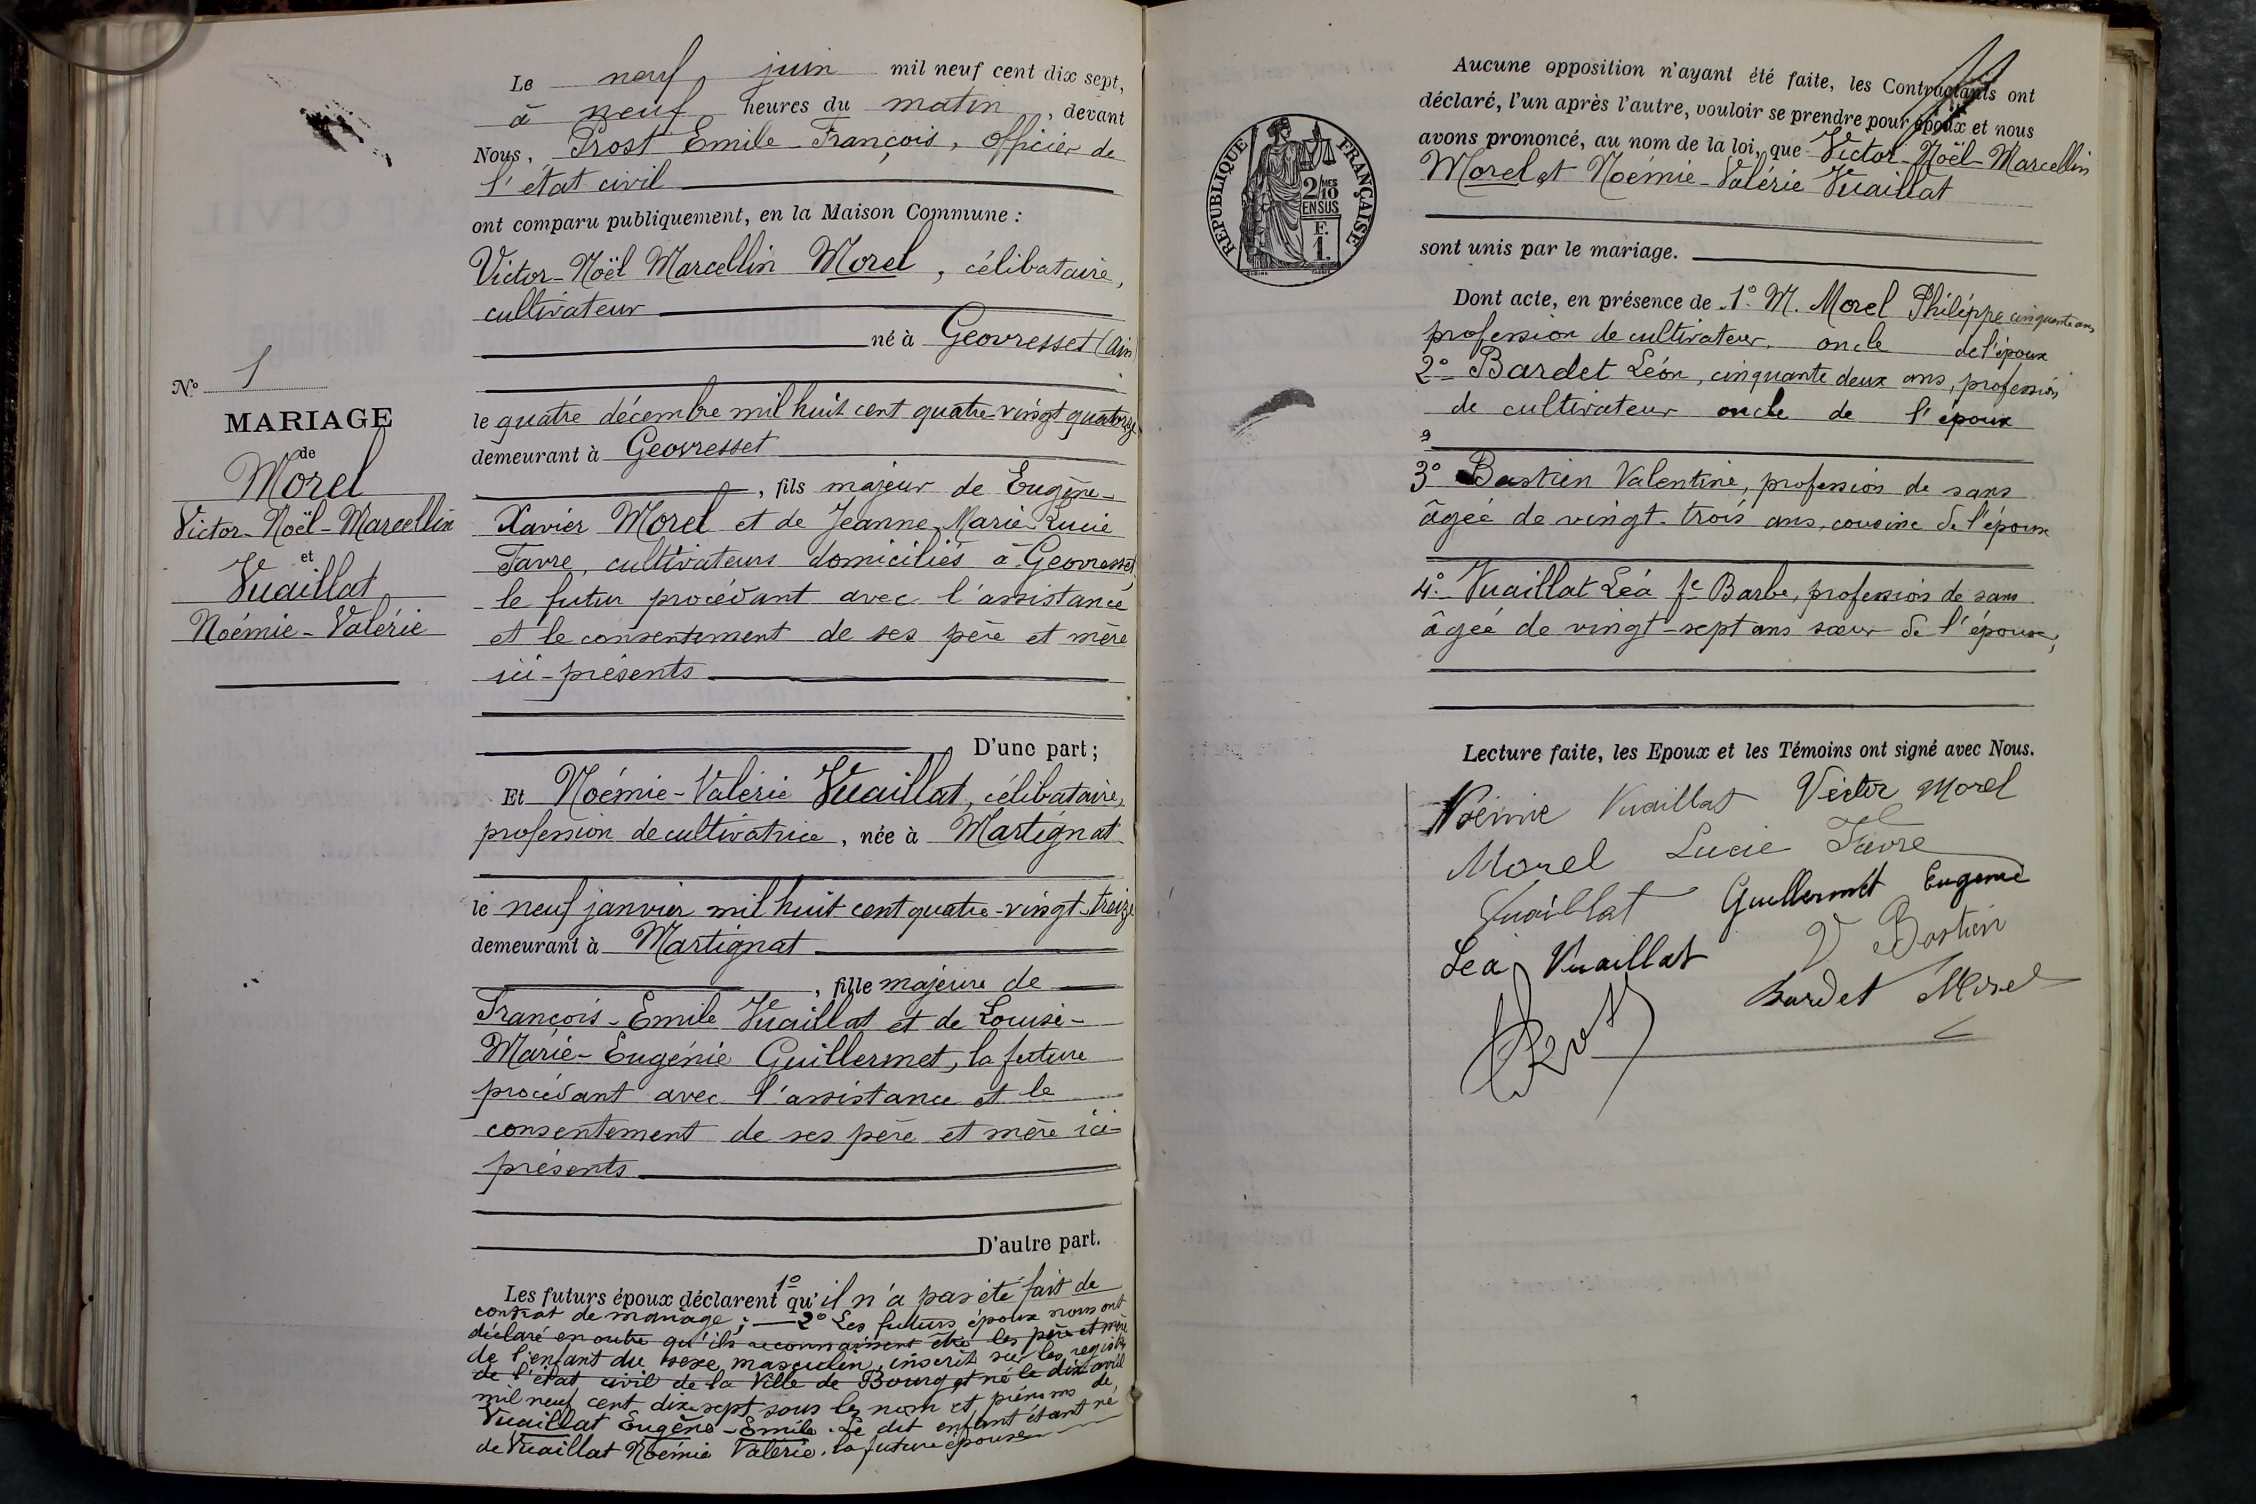 N° 1
MARIAGE
de
Morel
Victor-Noël-Marcellin
et
Vuaillat
Noémie-Valérie
Le neuf juin mil neuf cent dix sept,
à neuf heures du matin, devant
Nous, Prost Emile François, officier de
l'état civil
ont comparu publiquement, en la Maison Commune :
Victor-Noël Marcellin Morel, célibataire,
cultivateur
né à Geovresset (Ain)
le quatre décembre mil huit cent quatre-vingt quatorze
demeurant à Geovresset
, fils majeur de Eugène-
Xavier Morel et de Jeanne-Marie-Lucie
Favre, cultivateurs domiciliés à Geovresset,
le futur procédant avec l'assistance
et le consentement de ses père et mère
ici-présents
D'une part ;
Et Noémie-Valérie Vuaillat, célibataire,
profession de cultivatrice, née à Martignat
le neuf janvier mil huit cent quatre-vingt-treize
demeurant à Martignat
, fille majeure de
François-Emile Vuaillat et de Louise-
Marie-Eugénie Guillermet, la future
procédant avec l'assistance et le
consentement de ses père et mère ici-
présents
D'autre part.
Les futurs époux déclarent 1° qu'il n'a pas été fait de
contrat de mariage ; — 2° Les futurs époux nous ont
déclaré en outre qu'ils reconnaissent être les père et mère
de l'enfant du sexe masculin, inscrit sur les registres
de l'état civil de la Ville de Bourg et né le dix avril
mil neuf cent dix-sept sous les nom et prénoms de
Vuaillat Eugène-Emile. Le dit enfant étant né
de Vuaillat Noémie Valérie. la future épouse
REPUBLIQUE FRANÇAISE
2/10 MES
EN SUS
F.
1.
Aucune opposition n'ayant été faite, les Contractants ont
déclaré, l'un après l'autre, vouloir se prendre pour époux et nous
avons prononcé, au nom de la loi, que Victor-Noël-Marcellin
Morel et Noémie-Valérie Vuaillat
sont unis par le mariage.
Dont acte, en présence de 1° M. Morel Philippe cinquante ans,
profession de cultivateur, oncle de l'époux
2° Bardet Léon, cinquante deux ans, profession
de cultivateur oncle de l'époux
3° Bastien Valentine, profession de sans
âgée de vingt-trois ans, cousine de l'époux
4° Vuaillat Léa fe Barbe, profession de sans
âgée de vingt-sept ans sœur de l'épouse,
Lecture faite, les Epoux et les Témoins ont signé avec Nous.
Noémie Vuaillat Victor Morel
Morel Lucie Favre
Vuaillat Guillermet Eugenie
Lea Vuaillat V Bastien
Bardet Morel
Prost